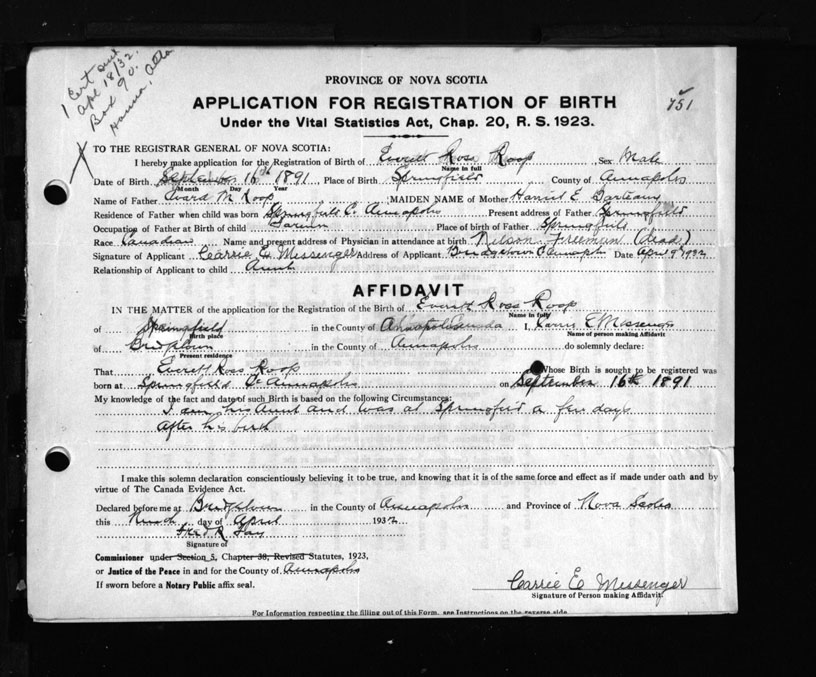 1 Cert sent
Apl 18/32.
Box 90.
Hanna, Alta
751
PROVINCE OF NOVA SCOTIA
APPLICATION FOR REGISTRATION OF BIRTH
Under the Vital Statistics Act, Chap. 20, R. S. 1923.
TO THE REGISTRAR GENERAL OF NOVA SCOTIA:
I hereby make application for the Registration of Birth of Everett Ross Roop Sex Male
Name in full
Date of Birth September 16th 1891 Place of Birth Springfield County of Annapolis
Month Day Year
Name of Father Avard M Roop MAIDEN NAME of Mother Harriet E
Residence of Father when child was born Springfield C. Annapolis Present address of Father Springfield
Occupation of Father at Birth of child Place of birth of Father Springfield
Race Canadian Name and present address of Physician in attendance at birth Nelson Freeman (dead)
Signature of Applicant Carrie E Messenger Address of Applicant Bridgetown C Annapolis Date Apr 9th 1932
Relationship of Applicant to child Aunt
AFFIDAVIT
IN THE MATTER of the application for the Registration of the Birth of Everett Ross Roop
Name in full
of Springfield in the County of Annapolis I, Carrie E Messenger
Birth place Name of person making Affidavit
of Bridgetown in the County of Annapolis do solemnly declare:
Present residence
That Everett Ross Roop Whose Birth is sought to be registered was
born at Springfield Co Annapolis on September 16th 1891
My knowledge of the fact and date of such Birth is based on the following Circumstances:
I am his Aunt and was at Springfield a few days
after his birth
I make this solemn declaration conscientiously believing it to be true, and knowing that it is of the same force and effect as if made under oath and by
virtue of The Canada Evidence Act.
Declared before me at Bridgetown in the County of Annapolis and Province of Nova Scotia
this Ninth day of April 1932
Fred R Fay
Signature of
Commissioner under Section 5, Chapter 38, Revised Statutes, 1923,
or Justice of the Peace in and for the County of Annapolis
If sworn before a Notary Public affix seal.
Carrie E Messenger
Signature of Person making Affidavit.
For Information respecting the filling out of this Form, see Instructions on the reverse side